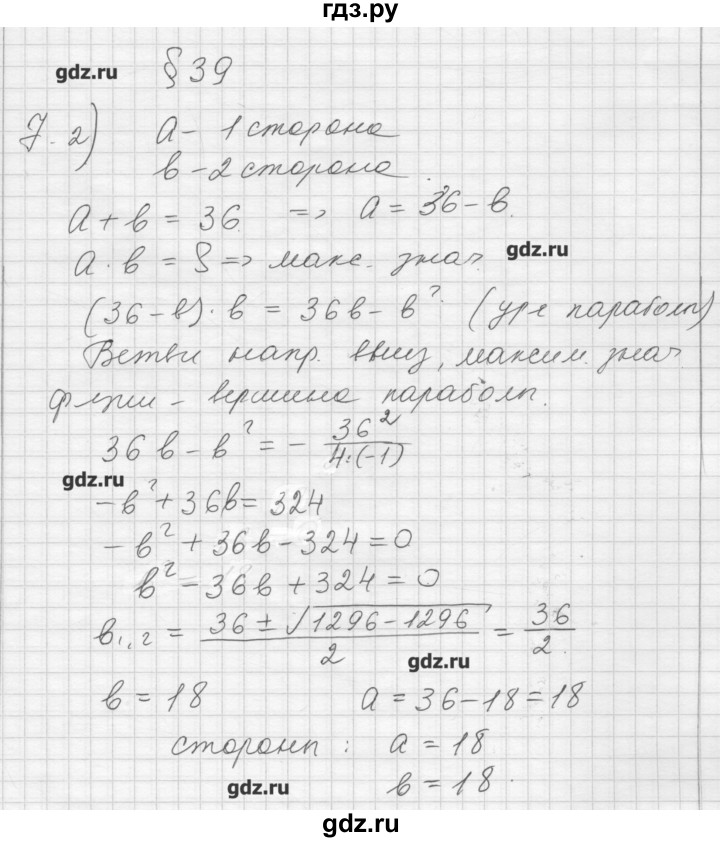 гдз.ру
gdz.ru § 39
7. 2) a - 1 сторона
в - 2 сторона
a + в = 36 => a = 36 - в.
a · в = S => макс. знач. gdz.ru
(36 - в) · в = 36в - в² (ур-е параболы)
Ветви напр. вниз, максим. знач.
ф-ции - вершина параболы.
36в - в² = - 36² / 4·(-1)
gdz.ru
-в² + 36в = 324
-в² + 36в - 324 = 0
в² - 36в + 324 = 0
в₁,₂ = (36 ± √(1296 - 1296)) / 2 = 36 / 2
gdz.ru
в = 18 a = 36 - 18 = 18
стороны : a = 18
в = 18.
gdz.ru
gdz.ru